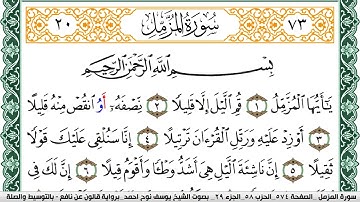 ٧٣ سُورَةُ المُزَّمِّلِ ٢٠
بِسْمِ اللَّهِ الرَّحْمَٰنِ الرَّحِيمِ
يَٰٓأَيُّهَا اَ۬لْمُزَّمِّلُ ١ قُمِ اِ۬ليْلَ إِلَّا قَلِيلًا ٢ نِّصْفَهُۥٓ أَوُ اُ۟نقُصْ مِنْهُ قَلِيلًا
٣ أَوْ زِدْ عَلَيْهِ وَرَتِّلِ اِ۬لْقُرْءَانَ تَرْتِيلًا ٤ إِنَّا سَنُلْقِى عَلَيْكَ قَوْلًا
ثَقِيلًا ٥ إِنَّ نَاشِئَةَ اَ۬ليْلِ هِىَ أَشَدُّ وَطْـًٔا وَأَقْوَمُ قِيلًا ٦ إِنَّ لَكَ فِى
سورة المزمل . الصفحة ٥٧٤ . الحزب ٥٨ . الجزء ٢٩ . بصوت الشيخ يوسف نوح احمد . برواية قالون عن نافع - بالتوسيط والصلة